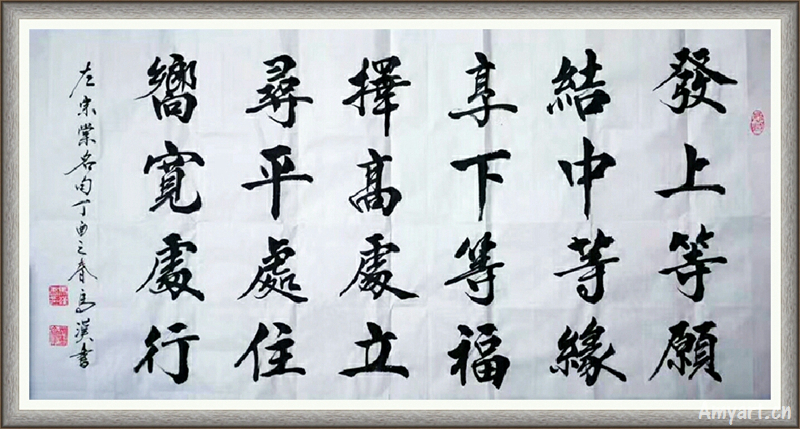 發上等願
結中等緣
享下等福
擇高處立
尋平處住
嚮寬處行
左宗棠名句丁酉之春漢書